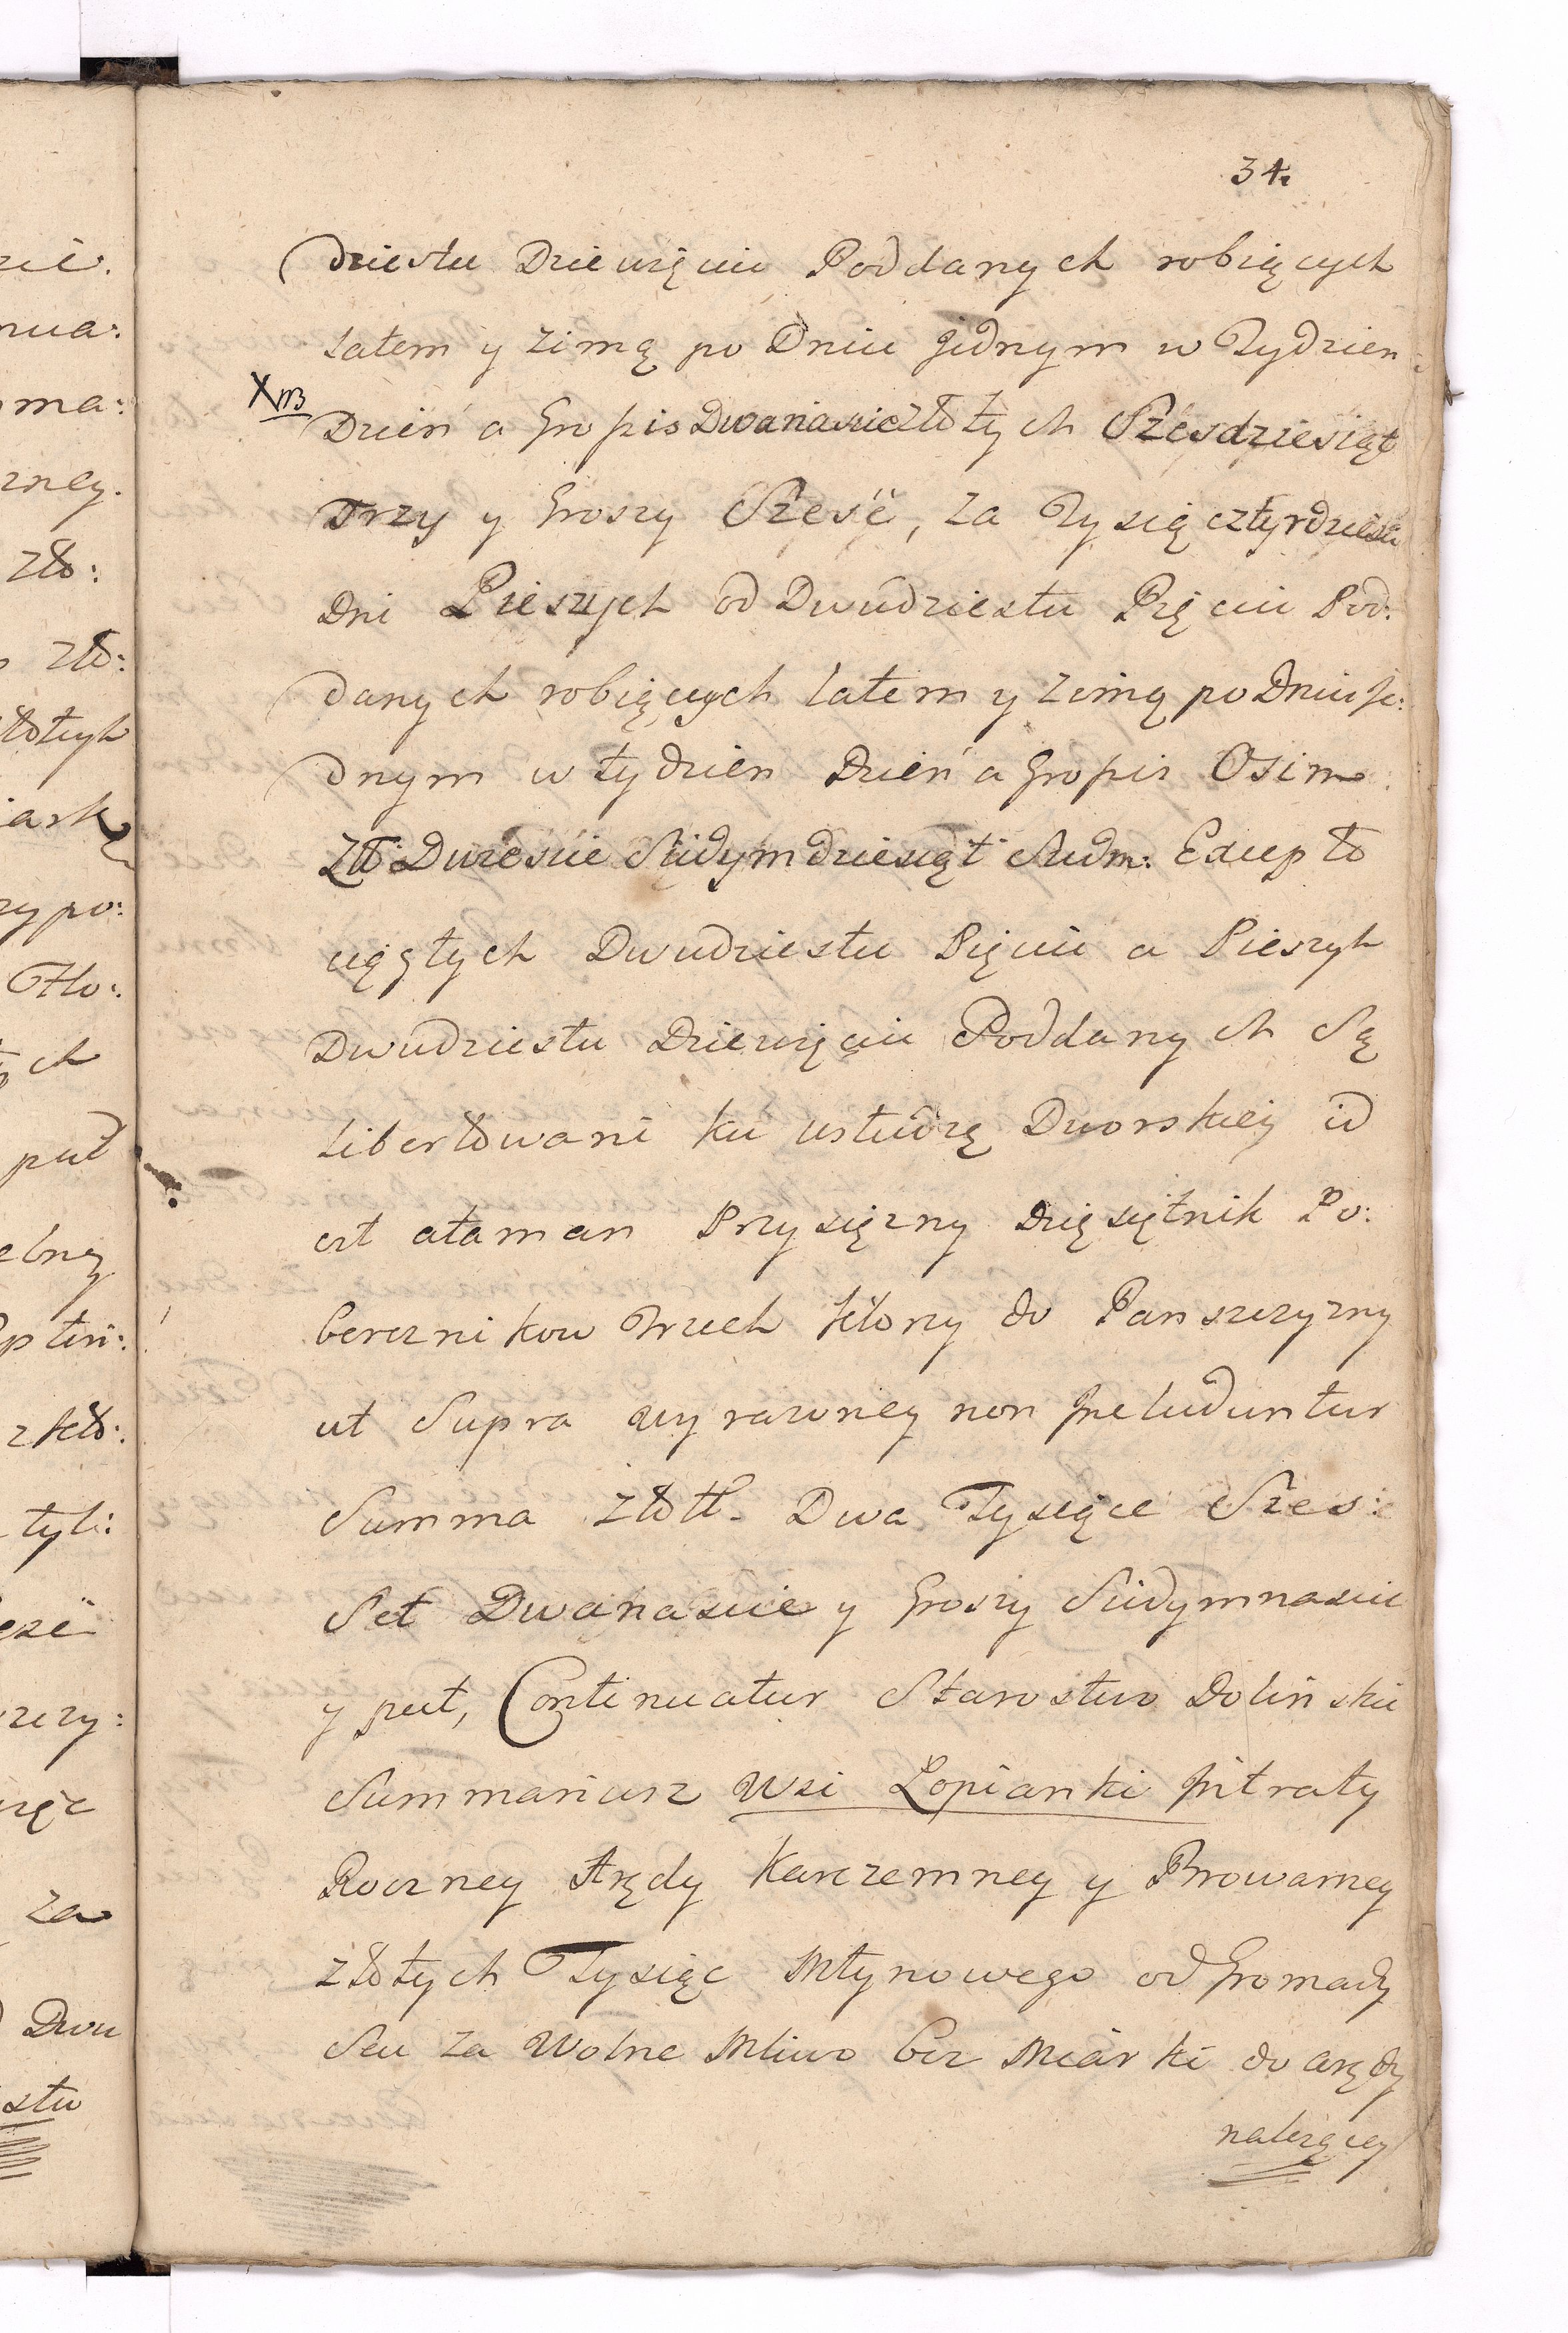 34
dziestu Dziewięciu Poddanych robiących
latem y zimą po Dniu jednym w Tydzien
XNB
Dzień a Groszis Dwanascie złotych Szesdziesiąt
Trzy y Groszy Szesć, za Tysiąc cztyrdziesci
Dni Pieszych od Dwudziestu Pięciu Pod:
danych robiących latem y zimą po Dniu je:
dnym w tydzien Dzień a Groszis Osim
Zło: Dwiescie Siedymdziesiąt Siedm: Excepto
ciągłych Dwudziestu Pięciu a Pieszych
Dwudziestu Dziewięciu Poddanych Są
libertowani ku usłudzę Dworskiey id
est ataman Przysiężny Dziesiętnik Po:
bereznikow Trzech którzy do Panszczyzny
ut Supra wyrazoney non Includuntur
Summa Złott. Dwa Tysiące Szes:
Set Dwanascie y Groszy Siedymnascie
y puł, Continuatur Starostwo Dolinskie
Summariusz Wsi Lopianki Intraty
Roczney Arędy Karczemney y Browarney
złotych Tysiąc Młynowego od Gromady
Seu za Wolne Mliwo bez Miarki do arędy
należącey
zie.
nua:
ma:
rney.
zło:
zło:
złotych
iark
rypo:
Zło:
ch
puł
za
Dwu
stu